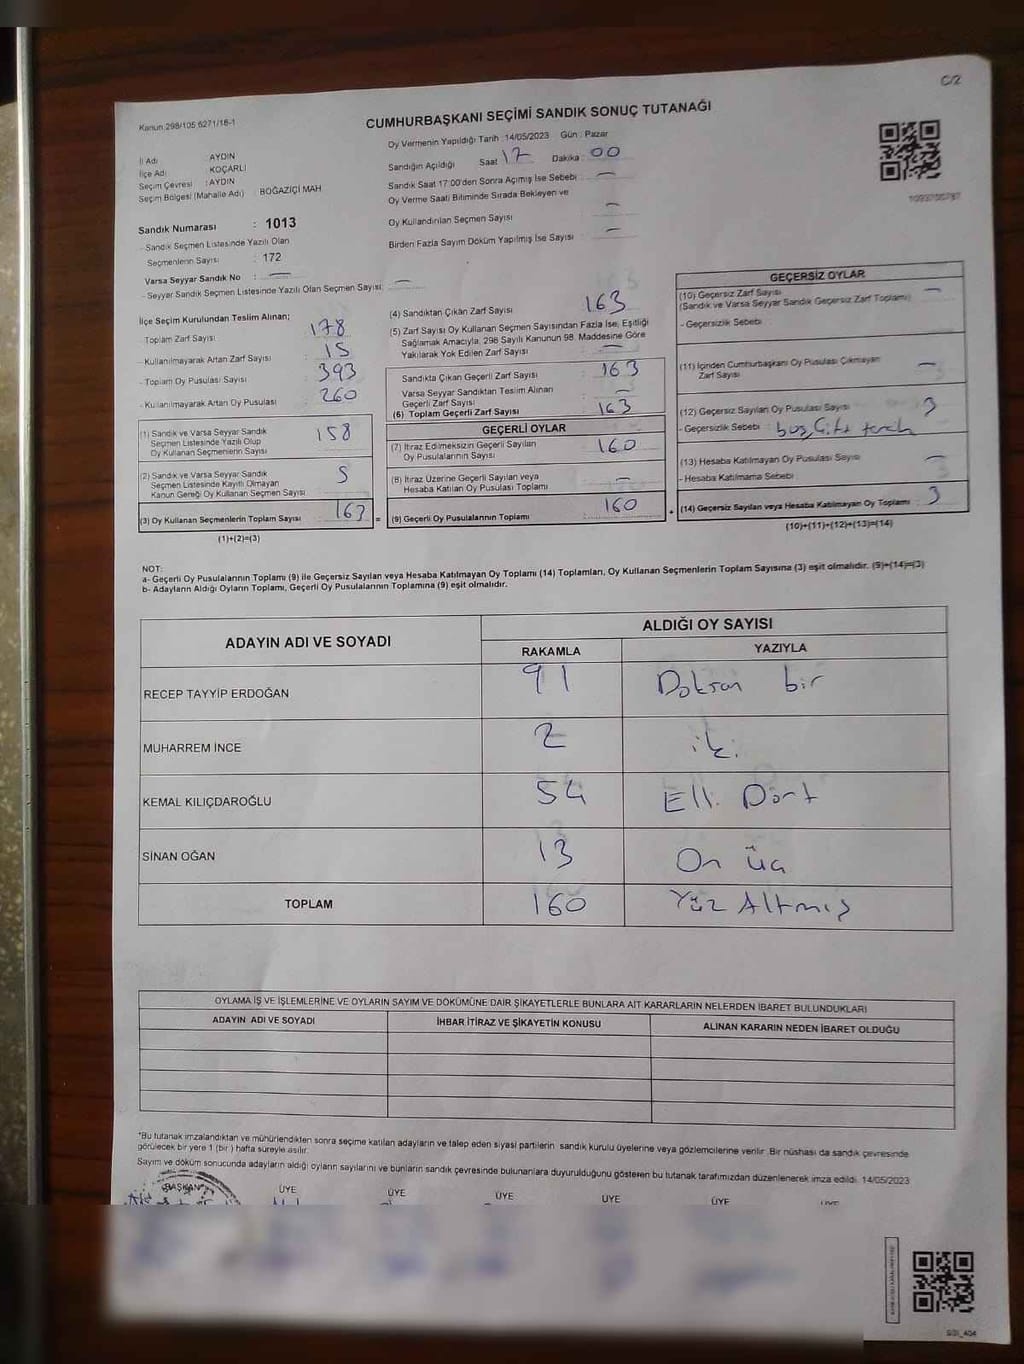 C/2
Kanun:298/105 6271/18-1
CUMHURBAŞKANI SEÇİMİ SANDIK SONUÇ TUTANAĞI
İl Adı AYDIN
İlçe Adı KOÇARLI
Seçim Çevresi : AYDIN
Seçim Bölgesi (Mahalle Adı) : BOĞAZİÇİ MAH
Sandık Numarası : 1013
- Sandık Seçmen Listesinde Yazılı Olan
Seçmenlerin Sayısı : 172
Varsa Seyyar Sandık No : —
- Seyyar Sandık Seçmen Listesinde Yazılı Olan Seçmen Sayısı: —
Oy Vermenin Yapıldığı Tarih : 14/05/2023 Gün : Pazar
Sandığın Açıldığı Saat 17 Dakika : 00
Sandık Saat 17:00'den Sonra Açımış İse Sebebi : —
Oy Verme Saati Bitiminde Sırada Bekleyen ve
Oy Kullandırılan Seçmen Sayısı : —
Birden Fazla Sayım Döküm Yapılmış İse Sayısı : —
İlçe Seçim Kurulundan Teslim Alınan;
Toplam Zarf Sayısı : 178
- Kullanılmayarak Artan Zarf Sayısı : 15
- Toplam Oy Pusulası Sayısı : 393
- Kullanılmayarak Artan Oy Pusulası : 260
(1) Sandık ve Varsa Seyyar Sandık
Seçmen Listesinde Yazılı Olup
Oy Kullanan Seçmenlerin Sayısı : 158
(2) Sandık ve Varsa Seyyar Sandık
Seçmen Listesinde Kayıtlı Olmayan
Kanun Gereği Oy Kullanan Seçmen Sayısı : 5
(3) Oy Kullanan Seçmenlerin Toplam Sayısı : 163 =
(1)+(2)=(3)
(4) Sandıktan Çıkan Zarf Sayısı : 163
(5) Zarf Sayısı Oy Kullanan Seçmen Sayısından Fazla İse, Eşitliği
Sağlamak Amacıyla, 298 Sayılı Kanunun 98. Maddesine Göre
Yakılarak Yok Edilen Zarf Sayısı : —
Sandıkta Çıkan Geçerli Zarf Sayısı : 163
Varsa Seyyar Sandıktan Teslim Alınan
Geçerli Zarf Sayısı : —
(6) Toplam Geçerli Zarf Sayısı : 163
GEÇERLİ OYLAR
(7) İtiraz Edilmeksizin Geçerli Sayılan
Oy Pusulalarının Sayısı : 160
(8) İtiraz Üzerine Geçerli Sayılan veya
Hesaba Katılan Oy Pusulası Toplamı : —
(9) Geçerli Oy Pusulalarının Toplamı : 160 +
GEÇERSİZ OYLAR
(10) Geçersiz Zarf Sayısı : —
(Sandık ve Varsa Seyyar Sandık Geçersiz Zarf Toplamı)
- Geçersizlik Sebebi :
(11) İçinden Cumhurbaşkanı Oy Pusulası Çıkmayan
Zarf Sayısı : —
(12) Geçersiz Sayılan Oy Pusulası Sayısı : 3
- Geçersizlik Sebebi : boş, Çift tercih
(13) Hesaba Katılmayan Oy Pusulası Sayısı : —
- Hesaba Katılmama Sebebi :
(14) Geçersiz Sayılan veya Hesaba Katılmayan Oy Toplamı : 3
(10)+(11)+(12)+(13)=(14)
NOT:
a- Geçerli Oy Pusulalarının Toplamı (9) ile Geçersiz Sayılan veya Hesaba Katılmayan Oy Toplamı (14) Toplamları, Oy Kullanan Seçmenlerin Toplam Sayısına (3) eşit olmalıdır. (9)+(14)=(3)
b- Adayların Aldığı Oyların Toplamı, Geçerli Oy Pusulalarının Toplamına (9) eşit olmalıdır.
ADAYIN ADI VE SOYADI ALDIĞI OY SAYISI
RAKAMLA YAZIYLA
RECEP TAYYİP ERDOĞAN 91 Doksan bir
MUHARREM İNCE 2 iki
KEMAL KILIÇDAROĞLU 54 Elli Dört
SİNAN OĞAN 13 On üç
TOPLAM 160 Yüz Altmış
OYLAMA İŞ VE İŞLEMLERİNE VE OYLARIN SAYIM VE DÖKÜMÜNE DAİR ŞİKAYETLERLE BUNLARA AİT KARARLARIN NELERDEN İBARET BULUNDUKLARI
ADAYIN ADI VE SOYADI İHBAR İTİRAZ VE ŞİKAYETİN KONUSU ALINAN KARARIN NEDEN İBARET OLDUĞU
*Bu tutanak imzalandıktan ve mühürlendikten sonra seçime katılan adayların ve talep eden siyasi partilerin sandık kurulu üyelerine veya gözlemcilerine verilir. Bir nüshası da sandık çevresinde
görülecek bir yere 1 (bir) hafta süreyle asılır.
Sayım ve döküm sonucunda adayların aldığı oyların sayılarını ve bunların sandık çevresinde bulunanlara duyurulduğunu gösteren bu tutanak tarafımızdan düzenlenerek imza edildi. 14/05/2023
BAŞKAN ÜYE ÜYE ÜYE ÜYE ÜYE ÜYE